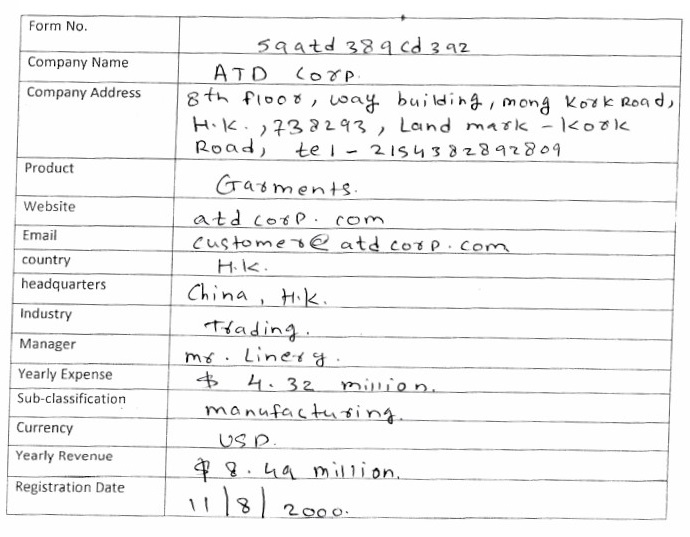 Form No. 59atd389cd392
Company Name ATD Corp.
Company Address 8th floor, way building, mong Kork Road,
H.K., 738293, Land mark - Kork
Road, tel - 2154382892809
Product Garments.
Website atdcorp.com
Email customer@atdcorp.com
country H.K.
headquarters China, H.K.
Industry Trading.
Manager mr. Linery.
Yearly Expense $ 4.32 million.
Sub-classification manufacturing.
Currency USD.
Yearly Revenue $ 8.49 million.
Registration Date 11/8/2000.